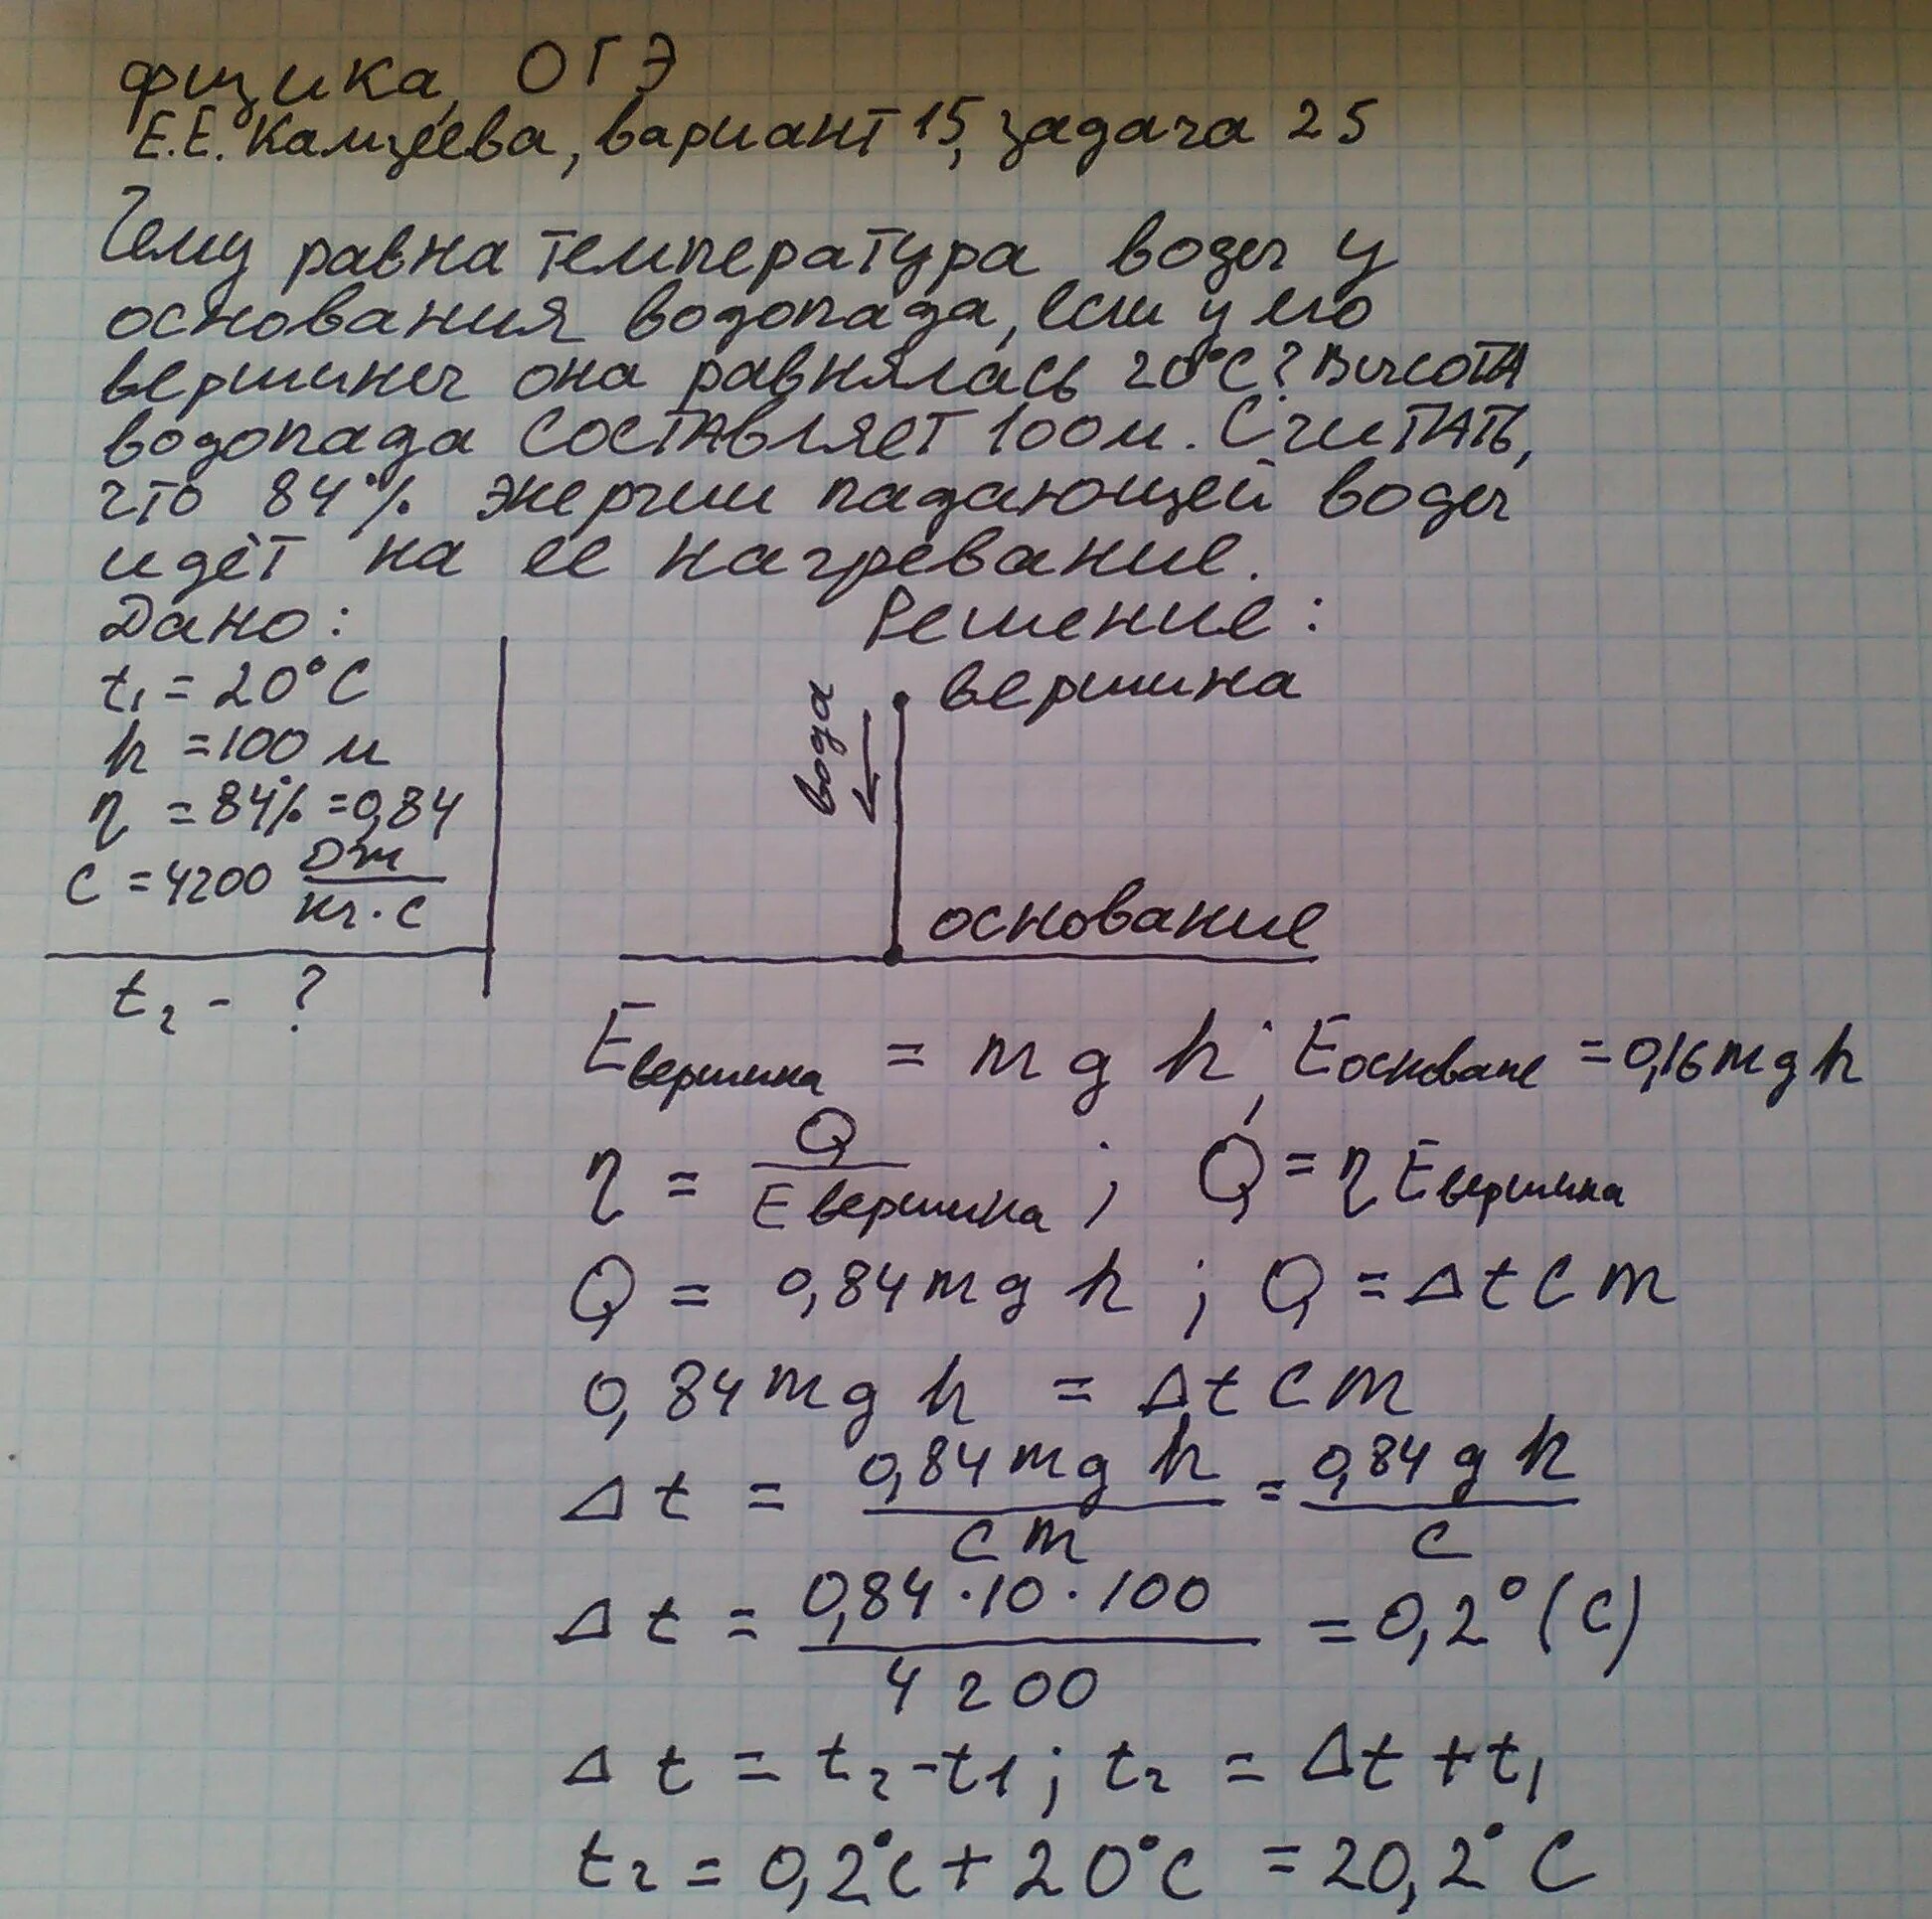 физика, ОГЭ
Е.Е. Камзеева, вариант 15, задача 25
Чему равна температура воды у
основания водопада, если у его
вершины она равнялась 20°С? Высота
водопада составляет 100м. Считать,
что 84% энергии падающей воды
идёт на её нагревание.
Дано:
t₁ = 20°C
h = 100 м
η = 84% = 0,84
c = 4200 Дж/кг·С
t₂ - ?
Решение:
вершина
вода
основание
Eвершина = mgh; Eосноване = 0,16mgh
η = Q/Eвершина; Q = ηEвершина
Q = 0,84mgh; Q = Δtcm
0,84mgh = Δtcm
Δt = 0,84mgh/cm = 0,84gh/c
Δt = 0,84·10·100/4200 = 0,2°(C)
Δt = t₂-t1; t₂ = Δt + t₁
t₂ = 0,2°C + 20°C = 20,2°C